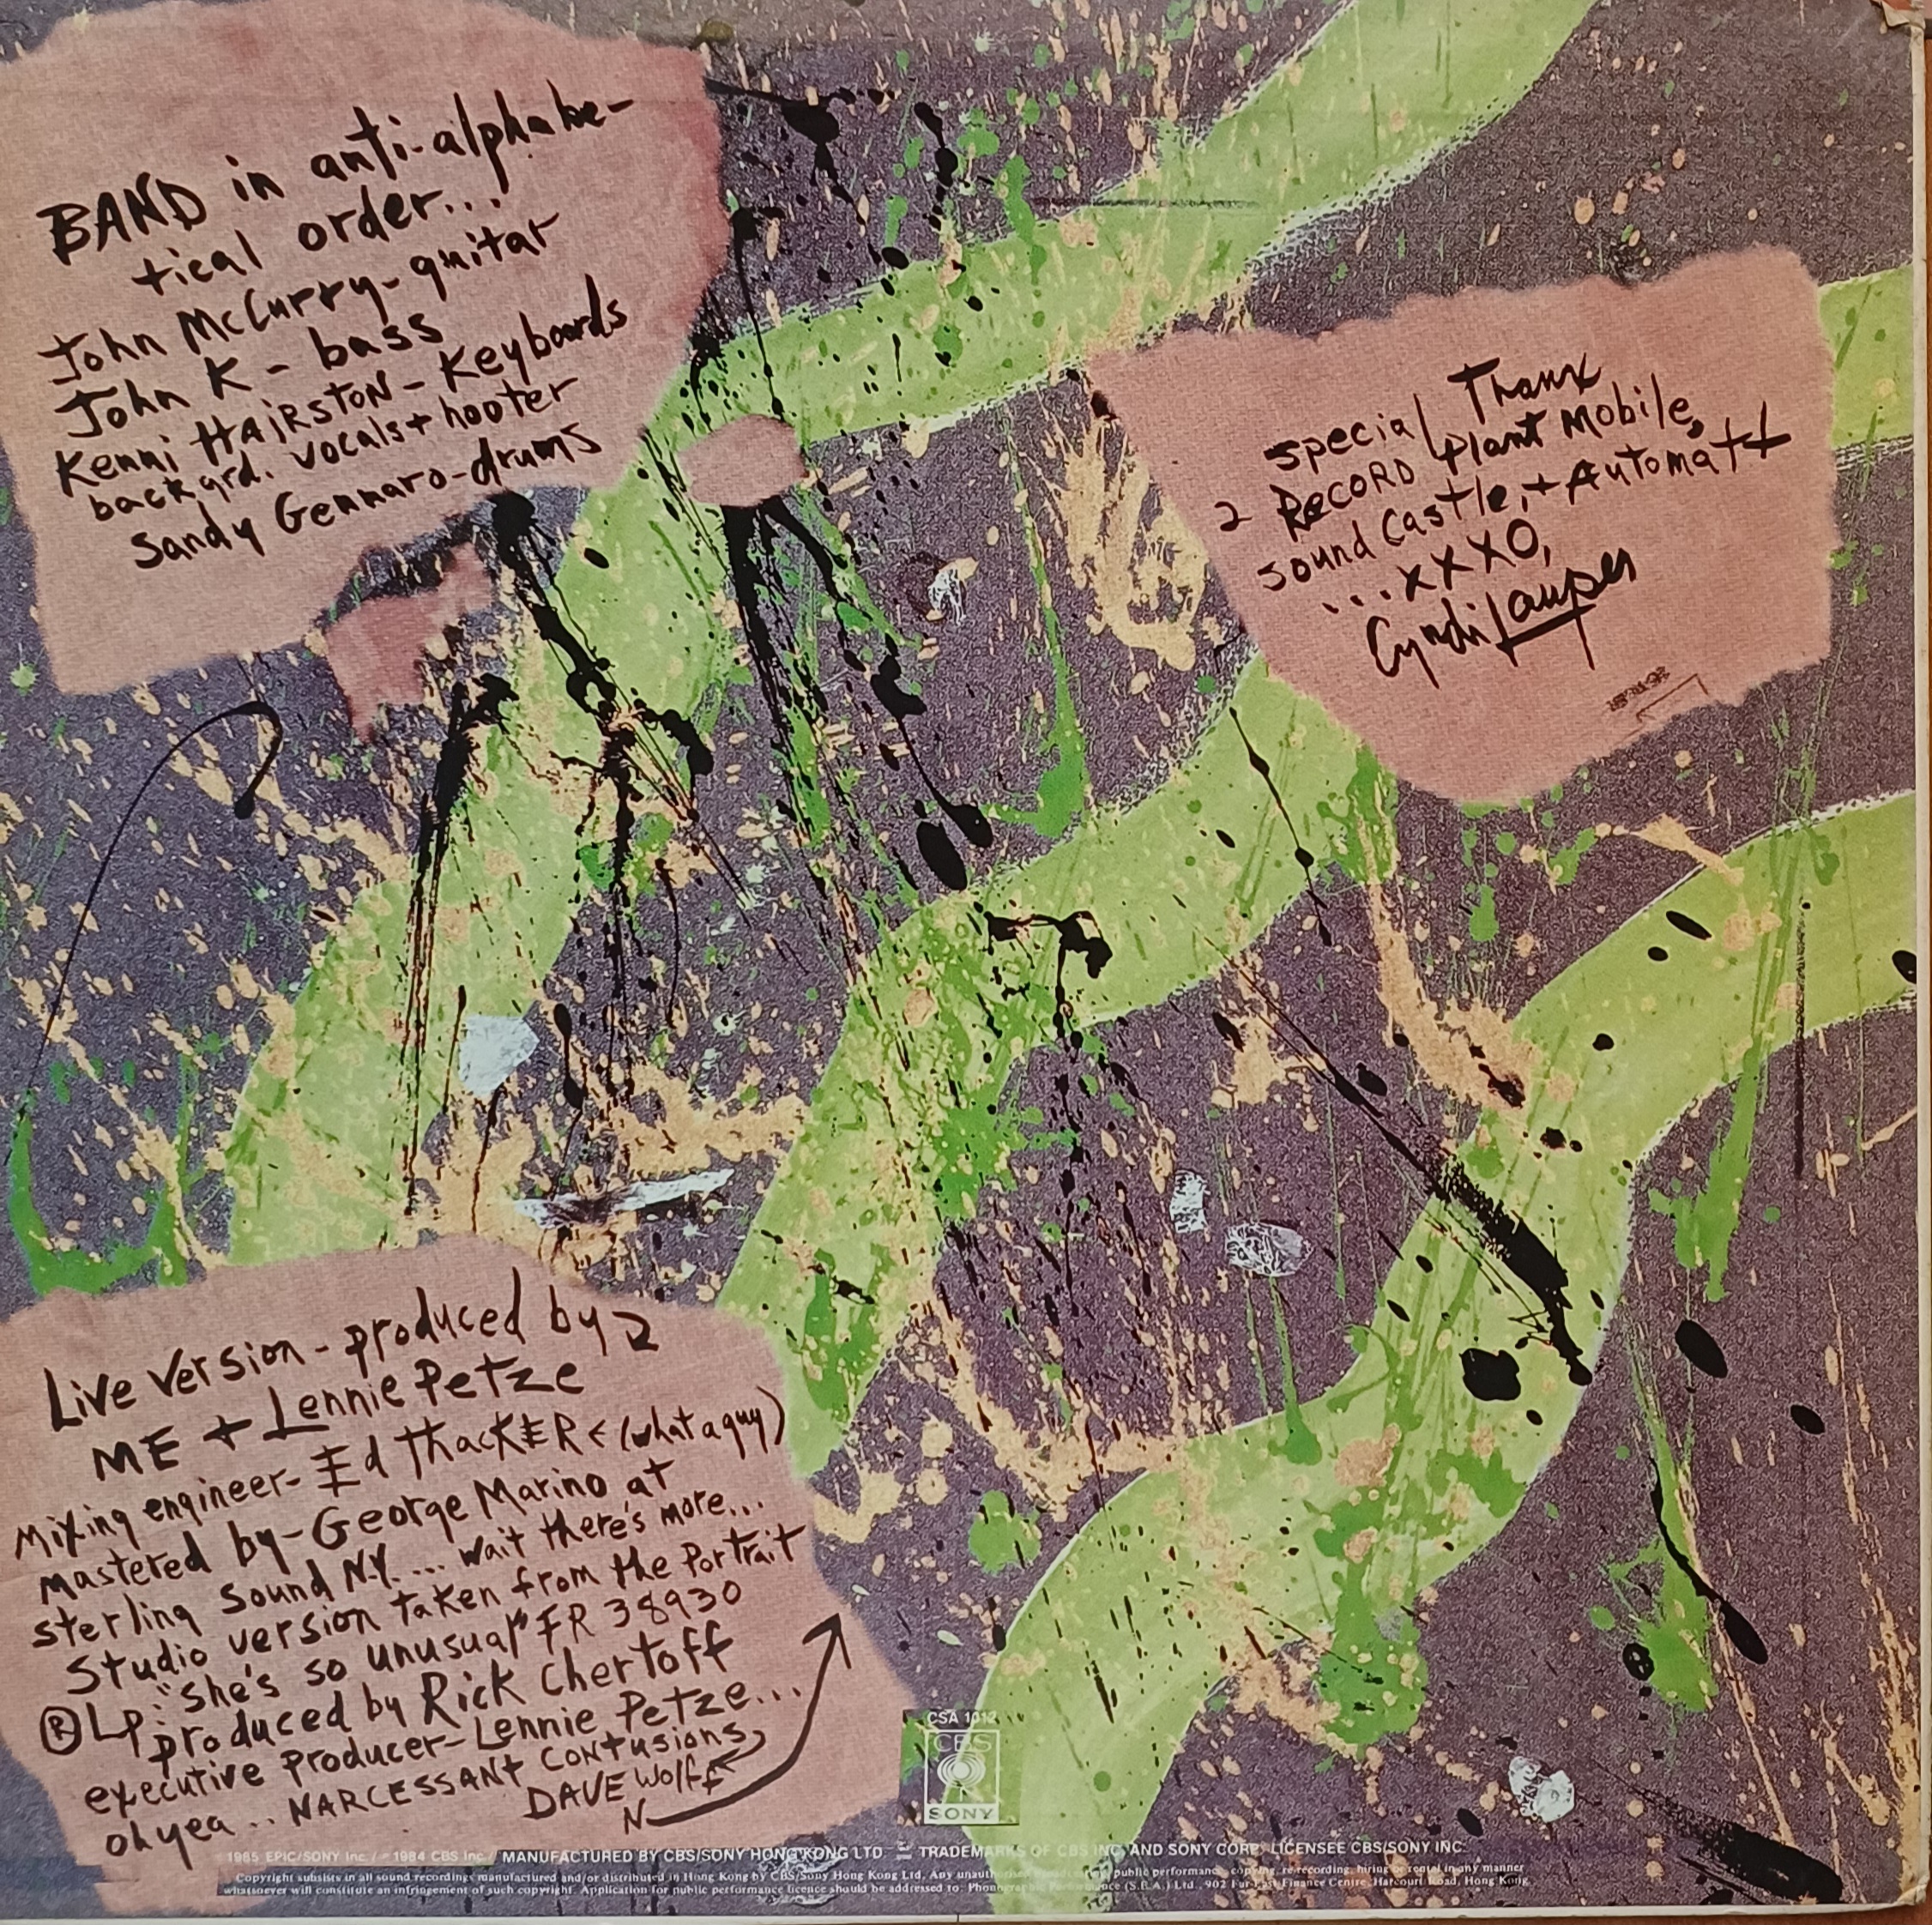 BAND in anti-alphabe-
tical order...
John McCurry-guitar
John K - bass
Kenni HAiRSTON - Keyboards
backgrd. vocals + hooter
Sandy Gennaro-drums
special Thanx
2 RecORD plant Mobile,
sound Castle, + Automatt
...xxxO,
Cyndi Lauper
Live version - produced by
ME + Lennie Petze
Mixing engineer- Ed ThacKER < (what a guy)
mastered by - George Marino at
sterling sound N.Y. ... wait there's more...
Studio version taken from the Portrait
® LP: "she's so unusual" FR 38930
produced by Rick Chertoff
executive producer- Lennie Petze...
oh yea .. NARCESSANT CONTUSIONS
DAVE Wolff
N
CSA 1012
CBS
SONY
1985 EPIC/SONY Inc. / ℗ 1984 CBS Inc. / MANUFACTURED BY CBS/SONY HONG KONG LTD. TRADEMARKS OF CBS INC. AND SONY CORP. LICENSEE CBS/SONY INC.
Copyright subsists in all sound recordings manufactured and/or distributed in Hong Kong by CBS/Sony Hong Kong Ltd. Any unauthorised public performance, copying, re-recording, hiring or rental in any manner
whatsoever will constitute an infringement of such copyright. Application for public performance licence should be addressed to: Phonographic Performance (S.E.A.) Ltd., 902 Far East Finance Centre, Harcourt Road, Hong Kong.